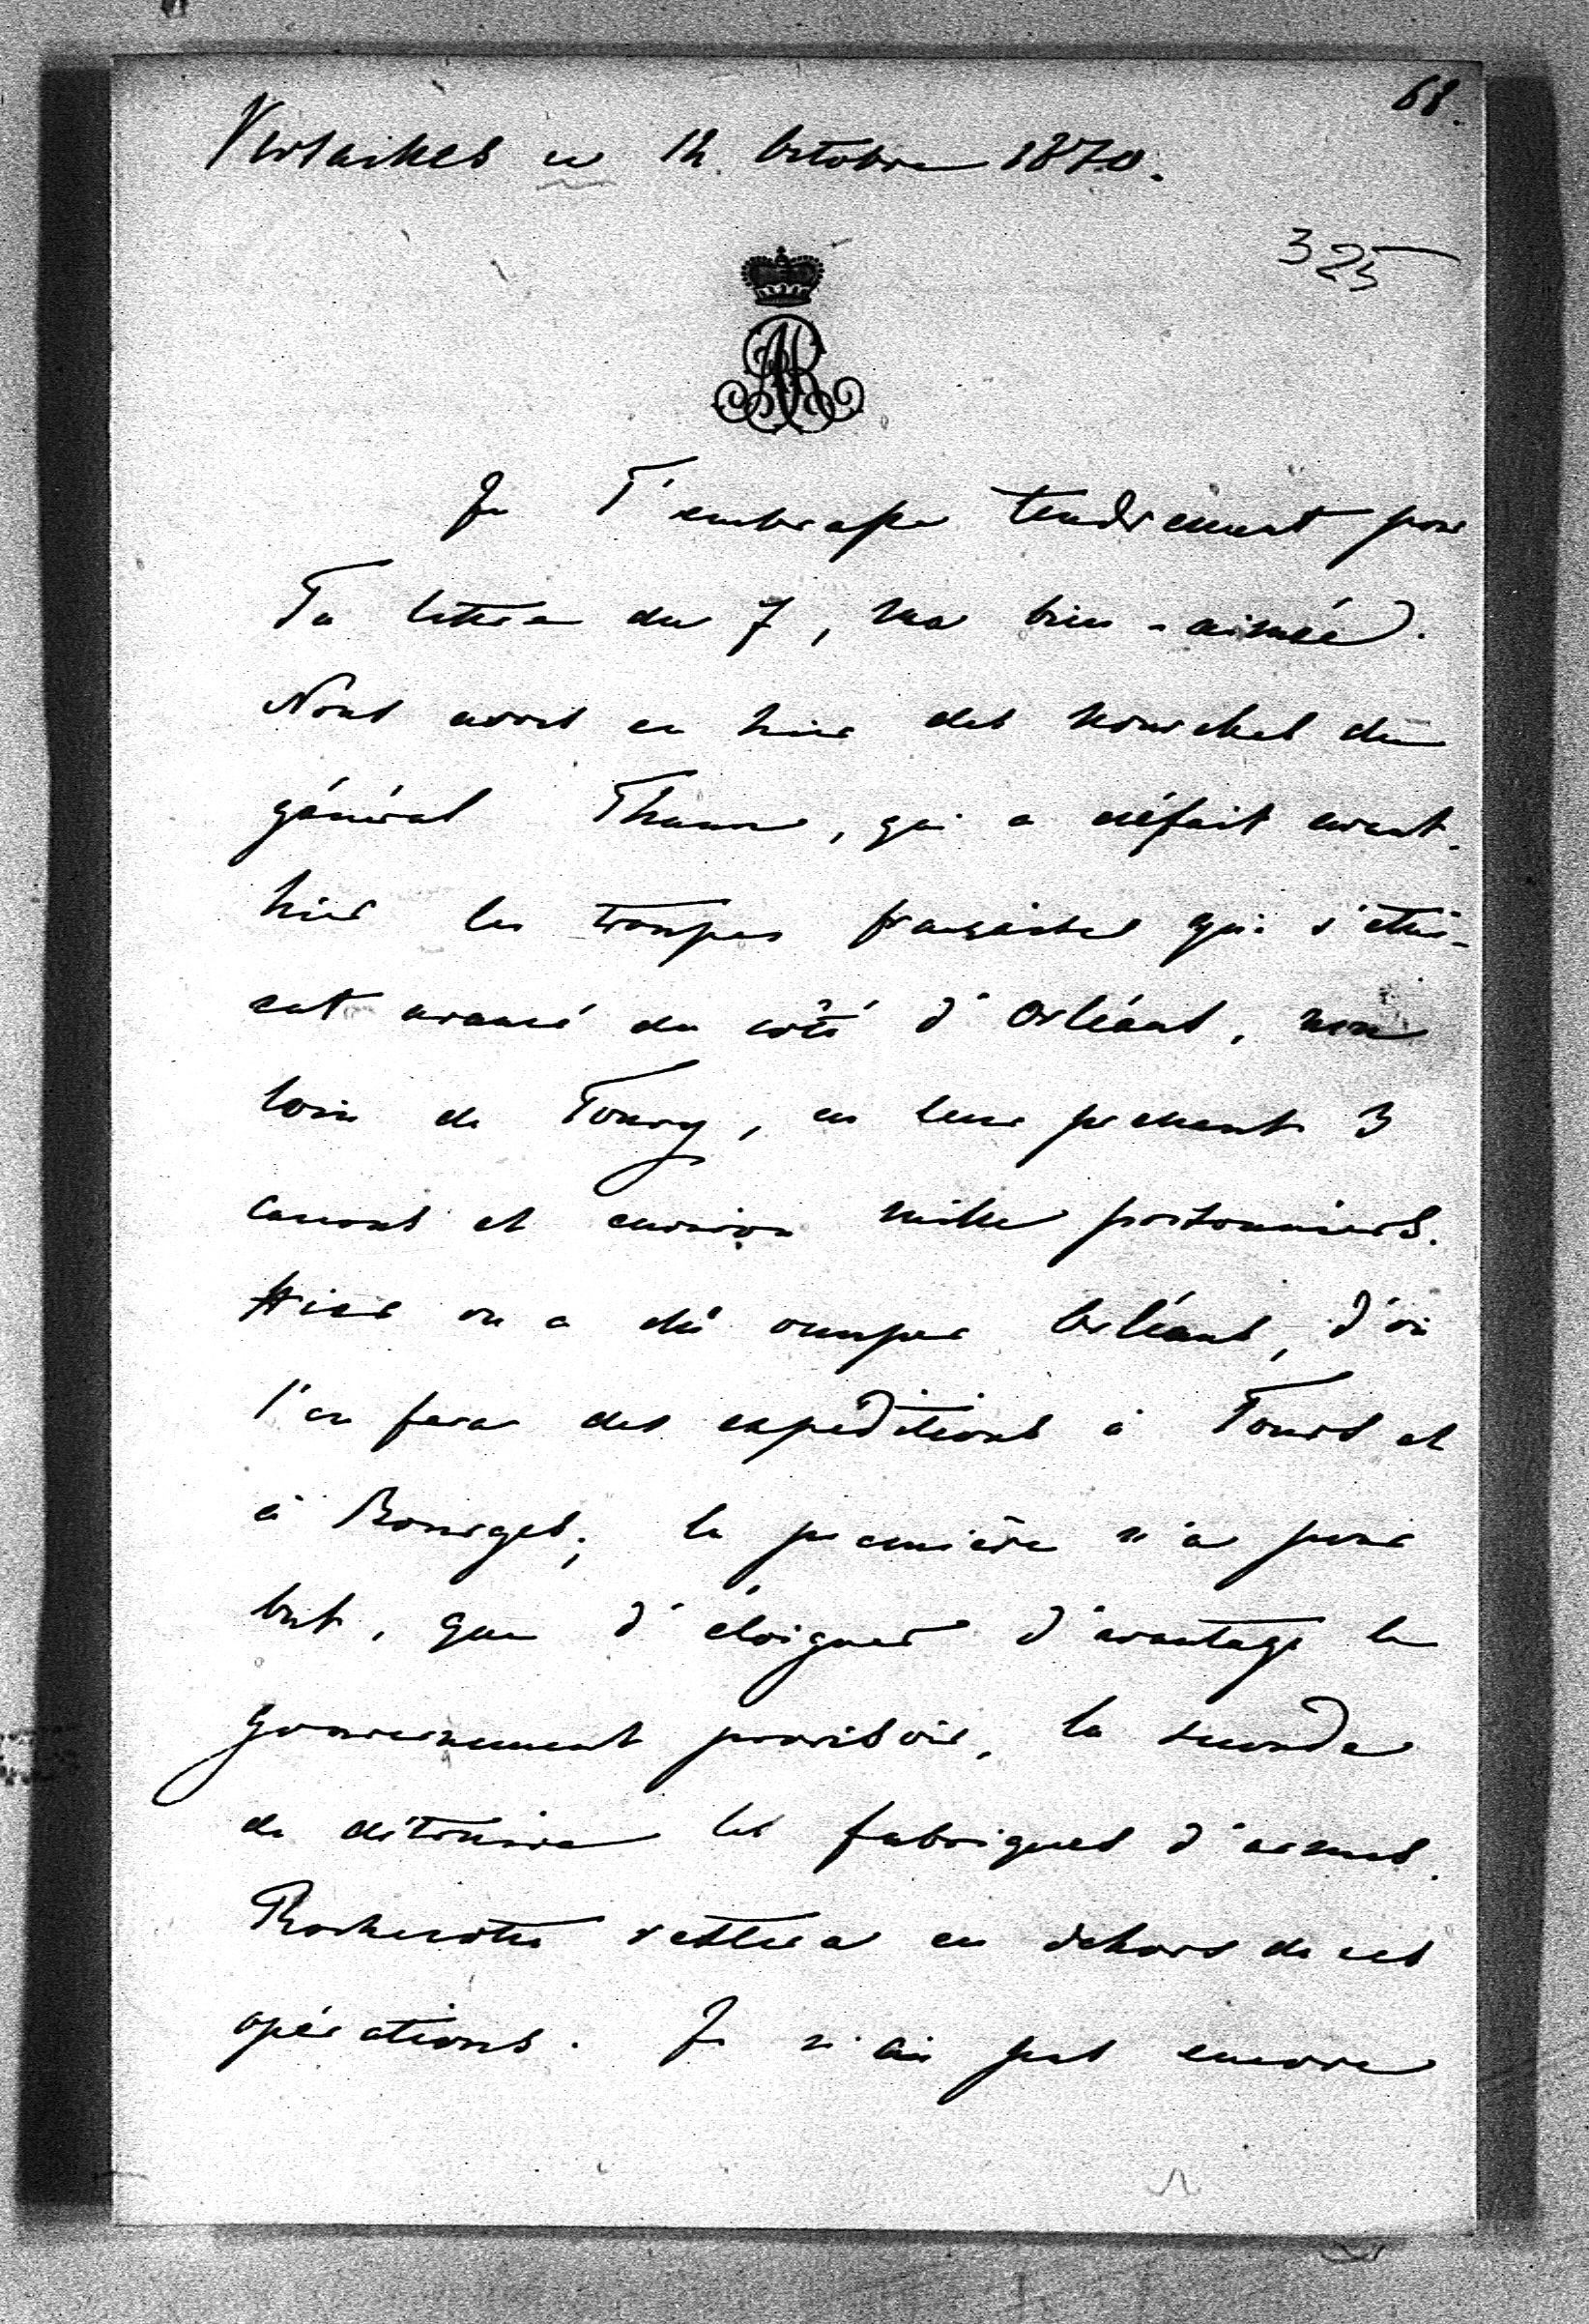 68.
Versailles ce 12 Octobre 1870.
325
AR
Je T'embrasse tendrement pour
Ta lettre du 7, ma bien-aimée.
Nous avons eu hier des nouvelles du
général Thann, qui a défait avant-
hier les troupes françaises qui s'étai-
ent avancé du côté d'Orléans, non
loin de Toury, en leur prenant 3
canons et environ mille prisonniers.
Hier on a dû occuper Orléans, d'où
l'on fera des expéditions à Tours et
à Bourges; la première n'a pour
but, que d'éloigner d'avantage le
gouvernement provisoir, la seconde
de détruire les fabriques d'armes.
Rochecotte restera en dehors de ces
opérations. Je n'ai pas encore